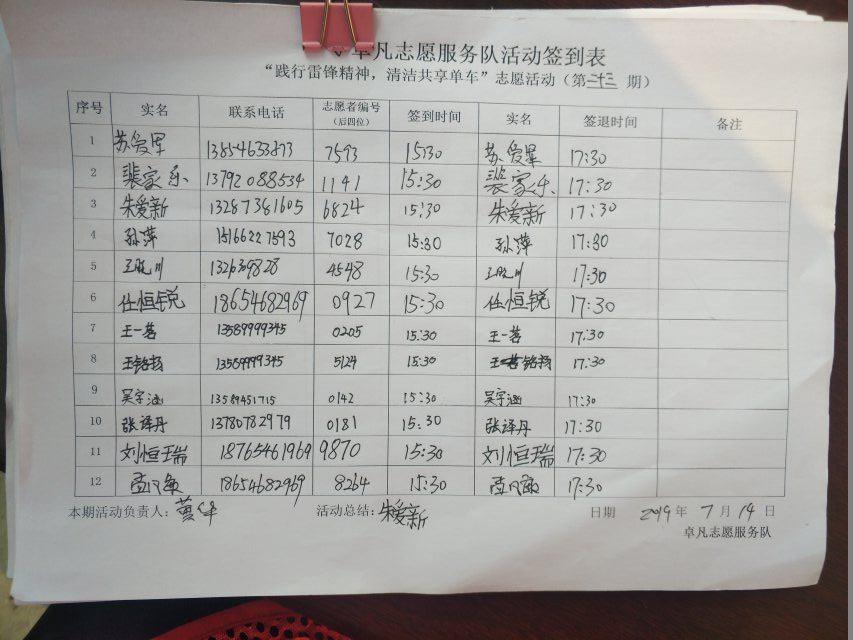 卓凡志愿服务队活动签到表
“践行雷锋精神，清洁共享单车”志愿活动（第 三十三 期）
序号 实名 联系电话 志愿者编号（后四位） 签到时间 实名 签退时间 备注
1 苏爱军 13854633873 7593 15:30 苏爱军 17:30
2 裴家乐 13792088534 1141 15:30 裴家乐 17:30
3 朱爱新 13287381605 6824 15:30 朱爱新 17:30
4 孙萍 15166227593 7028 15:30 孙萍 17:30
5 132639828 4548 15:30 17:30
6 任恒锐 18654682969 0927 15:30 任恒锐 17:30
7 王一茗 13589999345 0205 15:30 王一茗 17:30
8 王铭扬 13589999345 5124 15:30 铭扬 17:30
9 吴宇涵 13589451715 0142 15:30 吴宇涵 17:30
10 张译丹 13780782979 0181 15:30 张译丹 17:30
11 刘恒瑞 18765461969 9870 15:30 刘恒瑞 17:30
12 孟 18654682969 8264 15:30 孟 17:30
本期活动负责人： 活动总结：朱爱新 日期 2019 年 7 月 14 日
卓凡志愿服务队